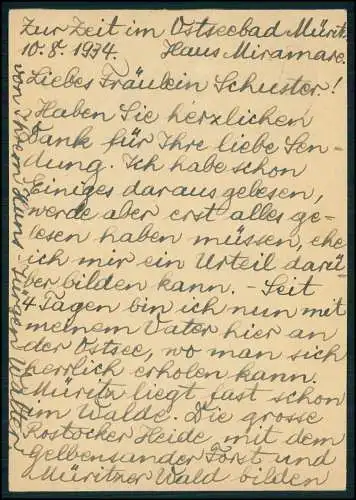 Zur Zeit im Ostseebad Müritz
10.8.1934. Haus Miramare.
Liebes Fräulein Schuster!
Haben Sie herzlichen
Dank für Ihre liebe Sen-
dung. Ich habe schon
Einiges daraus gelesen,
werde aber erst alles ge-
lesen haben müssen, ehe
ich mir ein Urteil darü-
ber bilden kann. - Seit
4 Tagen bin ich nun mit
meinem Vater hier an
der Ostsee, wo man sich
herrlich erholen kann.
Müritz liegt fast schon
im Walde. Die grosse
Rostocker Heide mit dem
Gelbensander Forst und
Müritzer Wald bilden
von Ihrem Hans Jürgen Walter